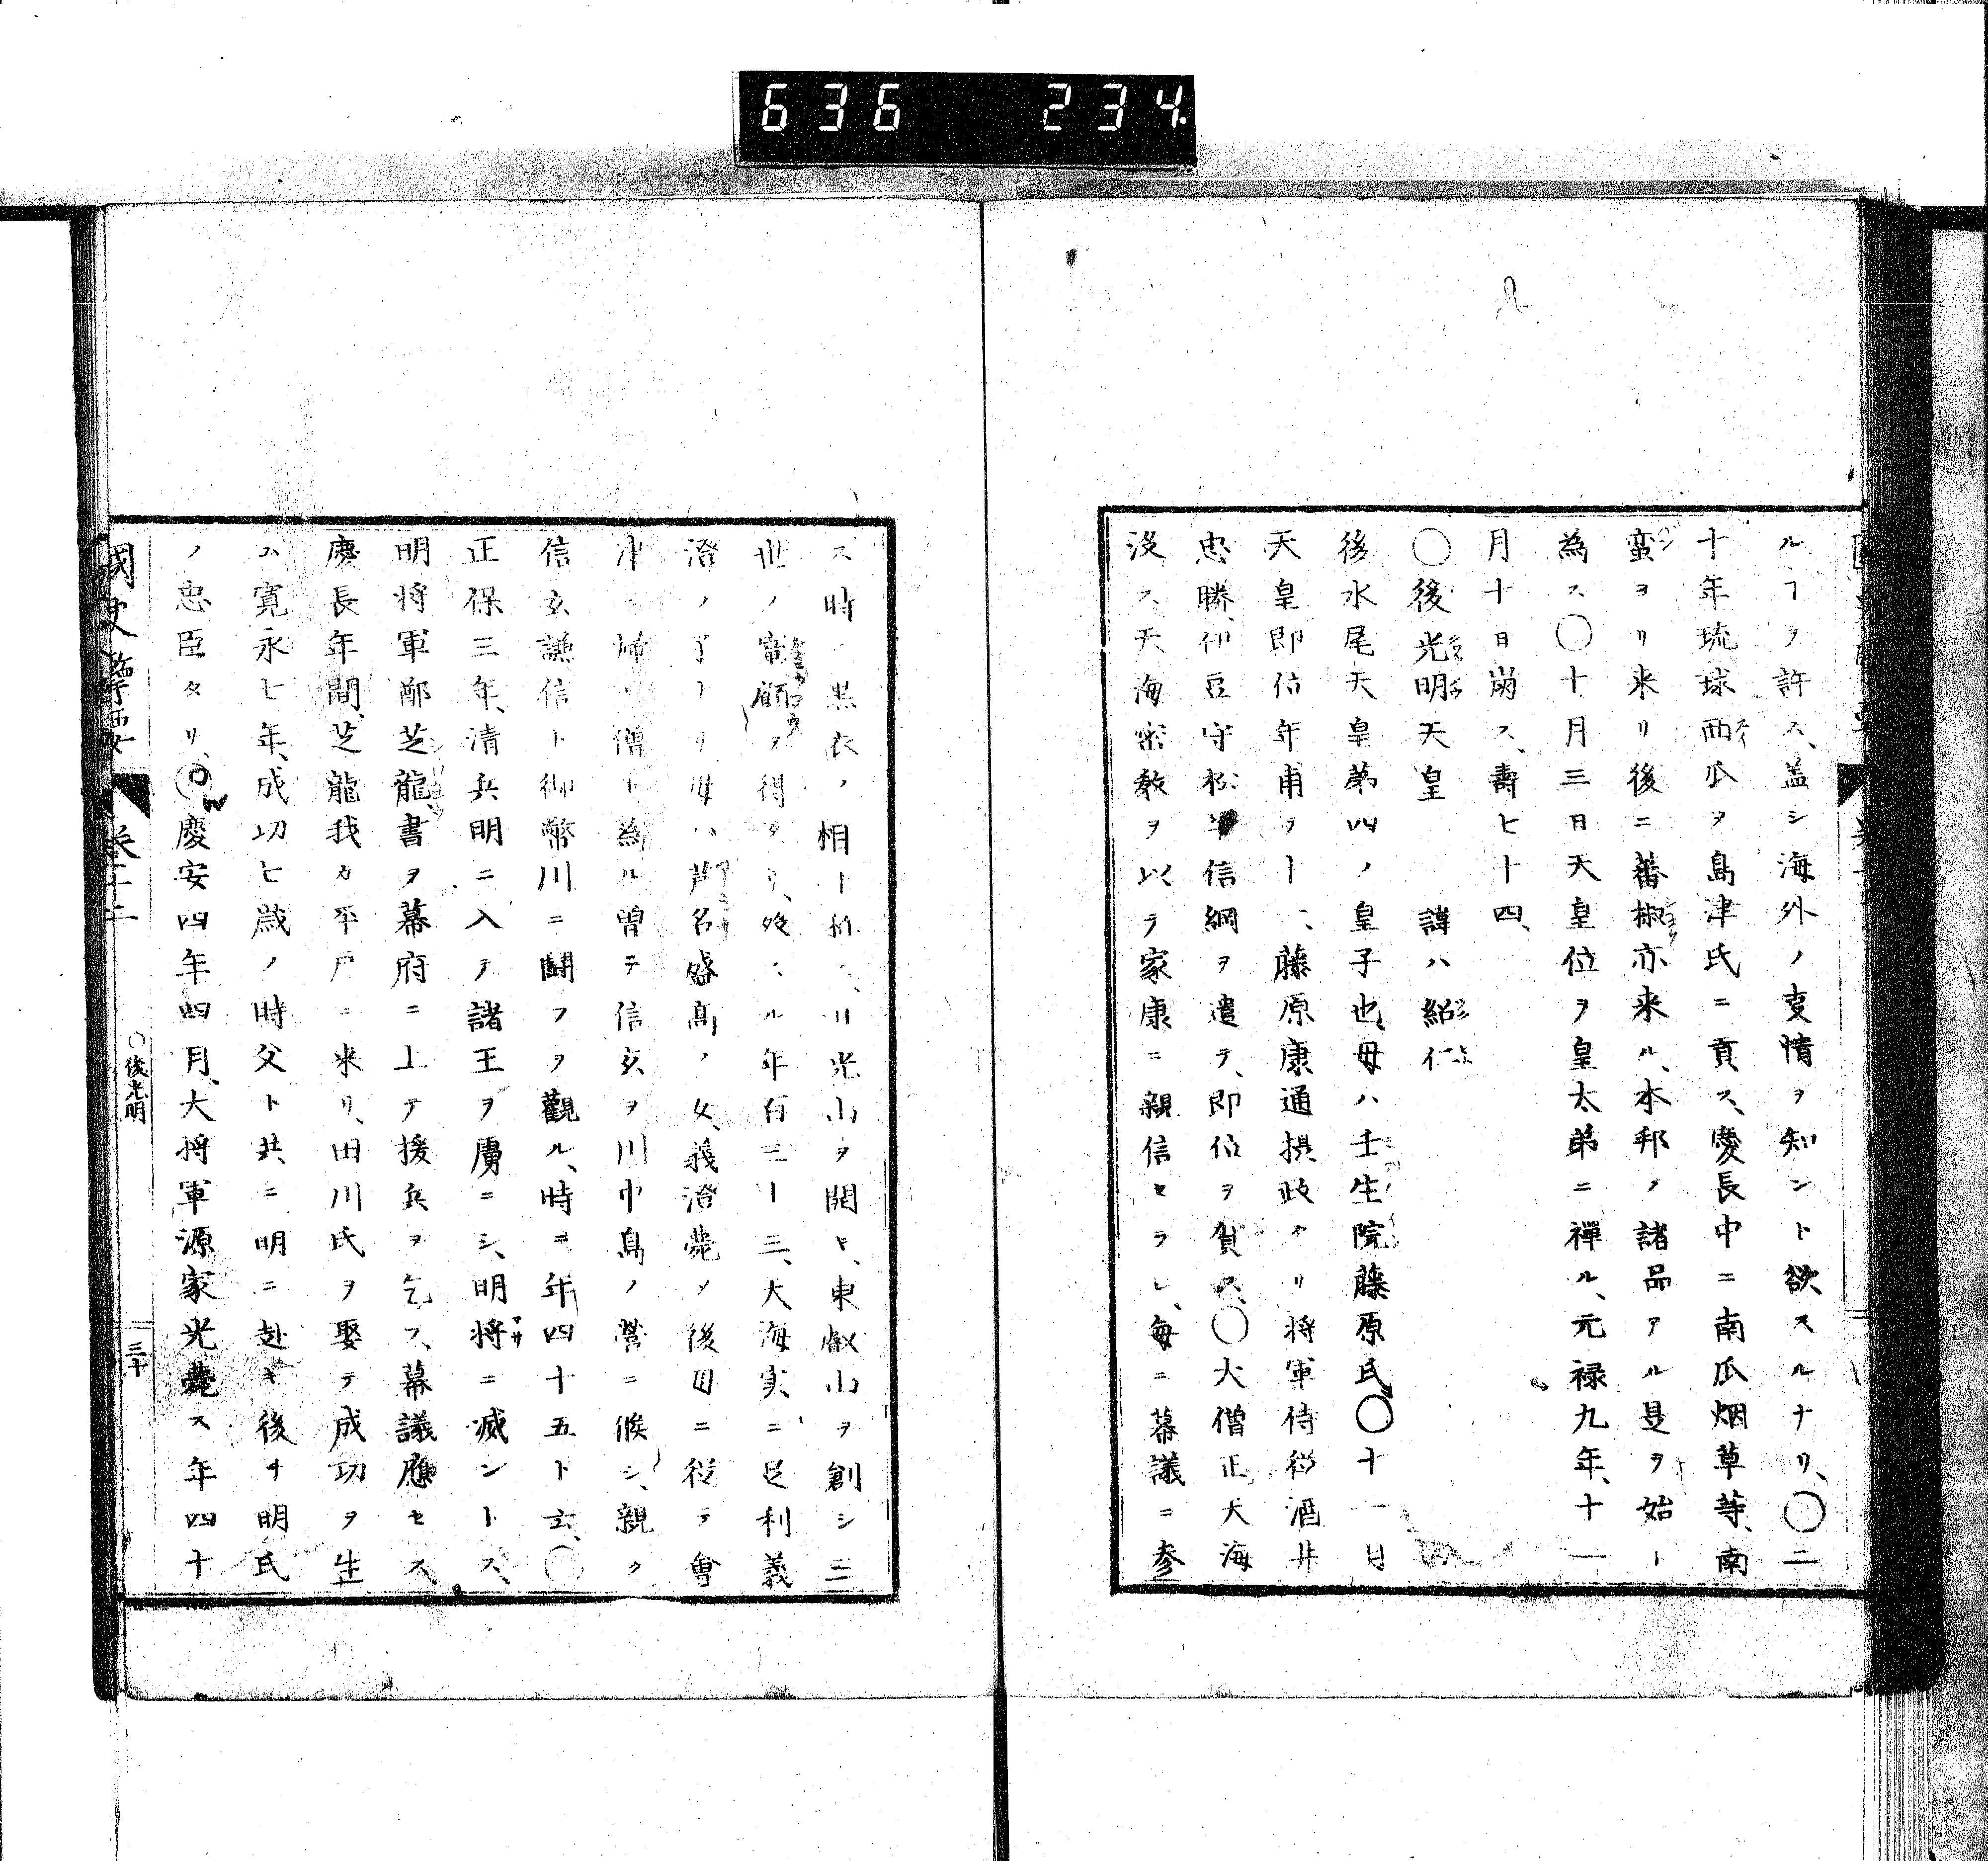 636 234.
ルヿヲ許ス、蓋シ海外ノ事情ヲ知ント欲スルナリ、〇二
十年琉球西瓜ヲ島津氏ニ貢ス、慶長中ニ南瓜烟草等、南
蛮ヨリ来リ後ニ蕃椒亦来ル、本邦ノ諸品アル是ヲ始ト
為ス〇十月三日天皇位ヲ皇太弟ニ禅ル、元禄九年、十一
月十日崩ス、壽七十四、
〇後光明天皇 諱ハ紹仁
後水尾天皇第四ノ皇子也、母ハ壬生院藤原氏〇十一日
天皇即位年甫ラ十一、藤原康通摂政タリ将軍侍従酒井
忠勝、伊豆守松平信綱ヲ遣テ、即位ヲ賀ス、〇大僧正天海
没ス、天海密教ヲ以テ家康ニ親信セラレ、毎ニ幕議ニ参
ス時ニ黒衣ノ相ト称ス、日光山ヲ開キ、東叡山ヲ創シ三
世ノ寵顧ヲ得タリ、歿スル年百三十三、天海実ニ足利義
澄ノ子ナリ母ハ芦名盛高ノ女、義澄薨メ後母ニ従テ會
津ニ帰リ僧ト為ル曽テ信玄ヲ川中島ノ営ニ候シ、親ク
信玄謙信ト御幣川ニ闘フヲ觀ル、時ニ年四十五ト云、〇
正保三年、清兵明ニ入テ諸王ヲ虜ニシ、明将ニ滅ントス、
明将軍鄭芝龍、書ヲ幕府ニ上テ援兵ヲ乞フ、幕議應セス、
慶長年間、芝龍我カ平戸ニ来リ、田川氏ヲ娶テ成功ヲ生
ム寛永七年、成功七歳ノ時父ト共ニ明ニ赴キ後チ明氏
ノ忠臣タリ、〇慶安四年四月、大将軍源家光薨ス年四十
國史擥要 巻十二 〇後光明 三十